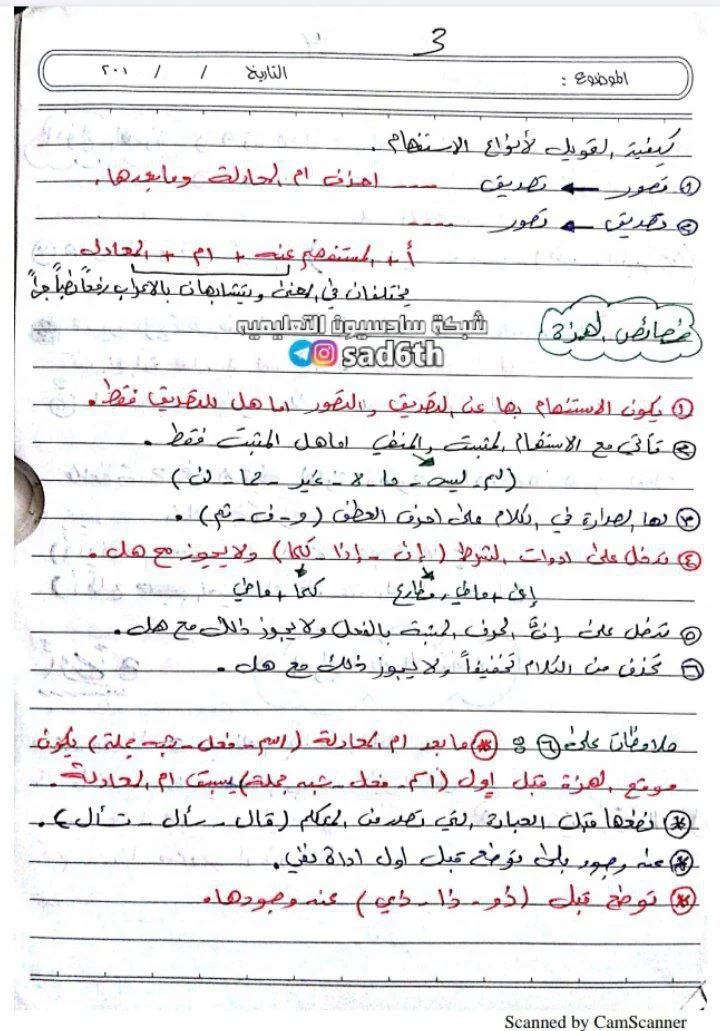 3
الموضوع : التاريخ / / ٢٠١
كيفية التحويل لأنواع الاستفهام .
① تصور ← تصديق .... احذف ام المعادلة ومابعدها .
② تصديق ← تصور ....
أ + المستفهم عنه + ام + المعادل
يختلفان في المعنى ويتشابهان بالاعراب رفعاً نصباً جراً
شبكة سادسيون التعليمية
sad6th
خصائص الهمزة
① يكون الاستفهام بها عن التصديق والتصور اما هل للتصديق فقط .
② تأتي مع الاستفهام المثبت والمنفي اماهل المثبت فقط .
(لم - ليس - ما - لا - غير - لما - لن)
③ لها الصدارة في الكلام على احرف العطف (و - ف - ثم) .
④ تدخل على ادوات الشرط (إن - إذا - كلما) ولا يجوز مع هل .
إن + ماضي ، مضارع كلما + ماضي
⑤ تدخل على إنَّ الحرف المشبه بالفعل ولا يجوز ذلك مع هل .
⑥ تحذف من الكلام تخفيفاً ولا يجوز ذلك مع هل .
ملاحظات على ⑥ : * مابعد ام المعادلة (اسم - فعل - شبه جملة) يكون
موقع الهمزة قبل اول (اسم - فعل - شبه جملة) يسبق ام المعادلة .
* نضعها قبل العبارة التي تصدر من المتكلم (قال - سأل - تسأل) .
* عند وجود بلى توضع قبل اول اداة نفي .
* توضع قبل (ذو - ذا - ذي) عند وجودها .
Scanned by CamScanner